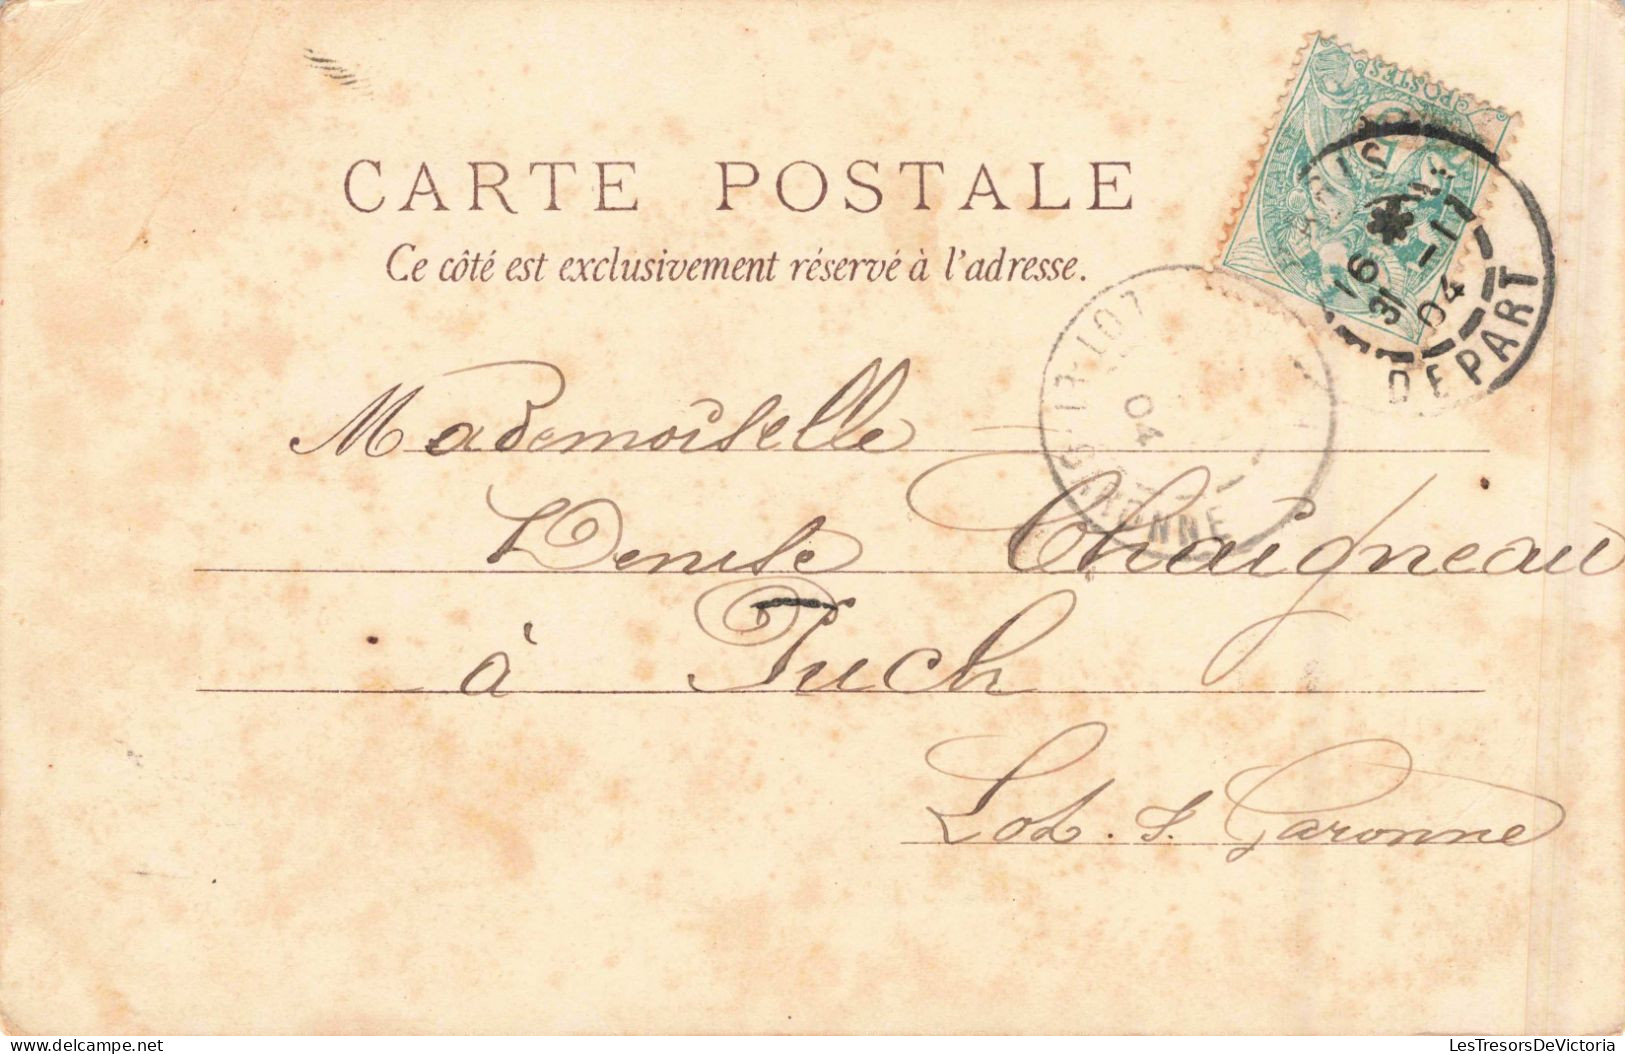 CARTE POSTALE
Ce côté est exclusivement réservé à l'adresse.
POSTES
PARIS
16
3/6 04
DEPART
LOT-ET-GARONNE
04
Mademoiselle
Denise Chaigneau
à Puch
Lot. s. Garonne
LesTresorsDeVictoria